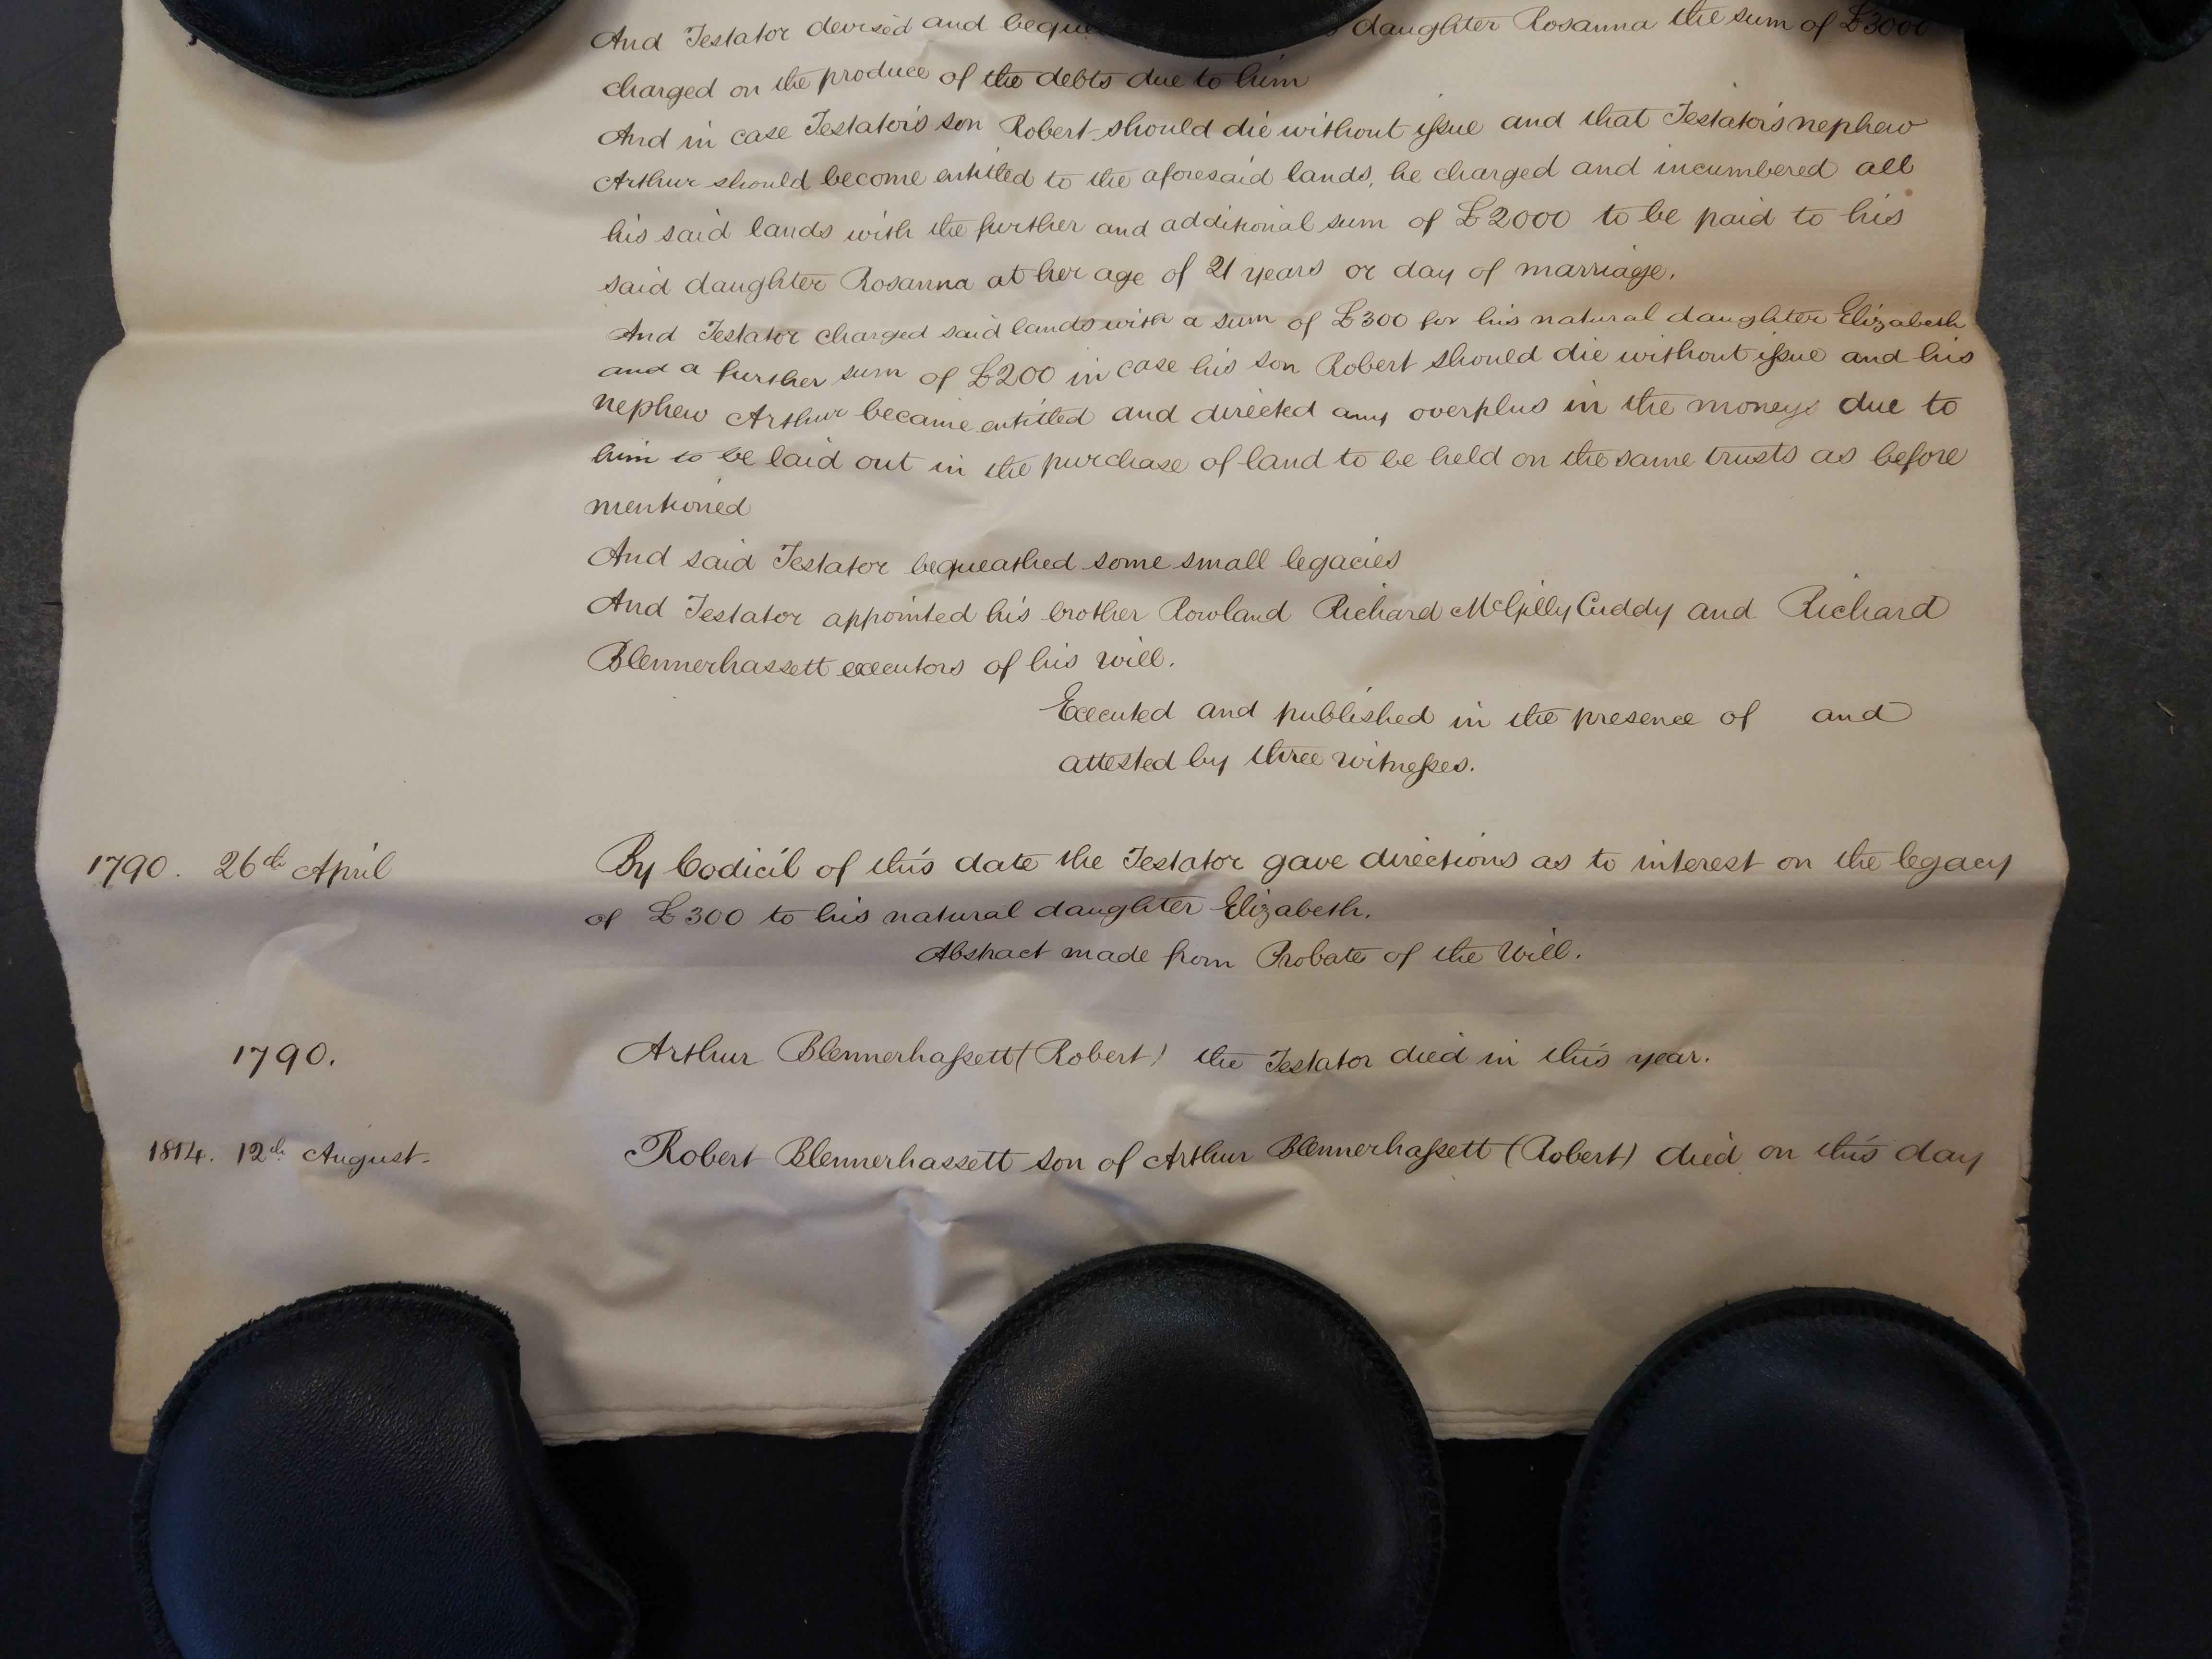 And Testator devised and daughter Rosanna the sum of £3000
charged on the produce of the debts due to him
And in case Testator's son Robert should die without issue and that Testator's nephew
Arthur should become entitled to the aforesaid lands, he charged and incumbered all
his said lands with the further and additional sum of £2000 to be paid to his
said daughter Rosanna at her age of 21 years or day of marriage.
And Testator charged said lands with a sum of £300 for his natural daughter Elizabeth
and a further sum of £200 in case his son Robert should die without issue and his
nephew Arthur became entitled and directed any overplus in the moneys due to
him to be laid out in the purchase of land to be held on the same trusts as before
mentioned
And said Testator bequeathed some small legacies
And Testator appointed his brother Rowland Richard McGillyCuddy and Richard
Blennerhassett executors of his will.
Executed and published in the presence of and
attested by three witnesses.
1790. 26th April By Codicil of this date the Testator gave directions as to interest on the legacy
of £300 to his natural daughter Elizabeth.
Abstract made from Probate of the Will.
1790. Arthur Blennerhassett (Robert) the Testator died in this year.
1814. 12th August. Robert Blennerhassett son of Arthur Blennerhassett (Robert) died on this day